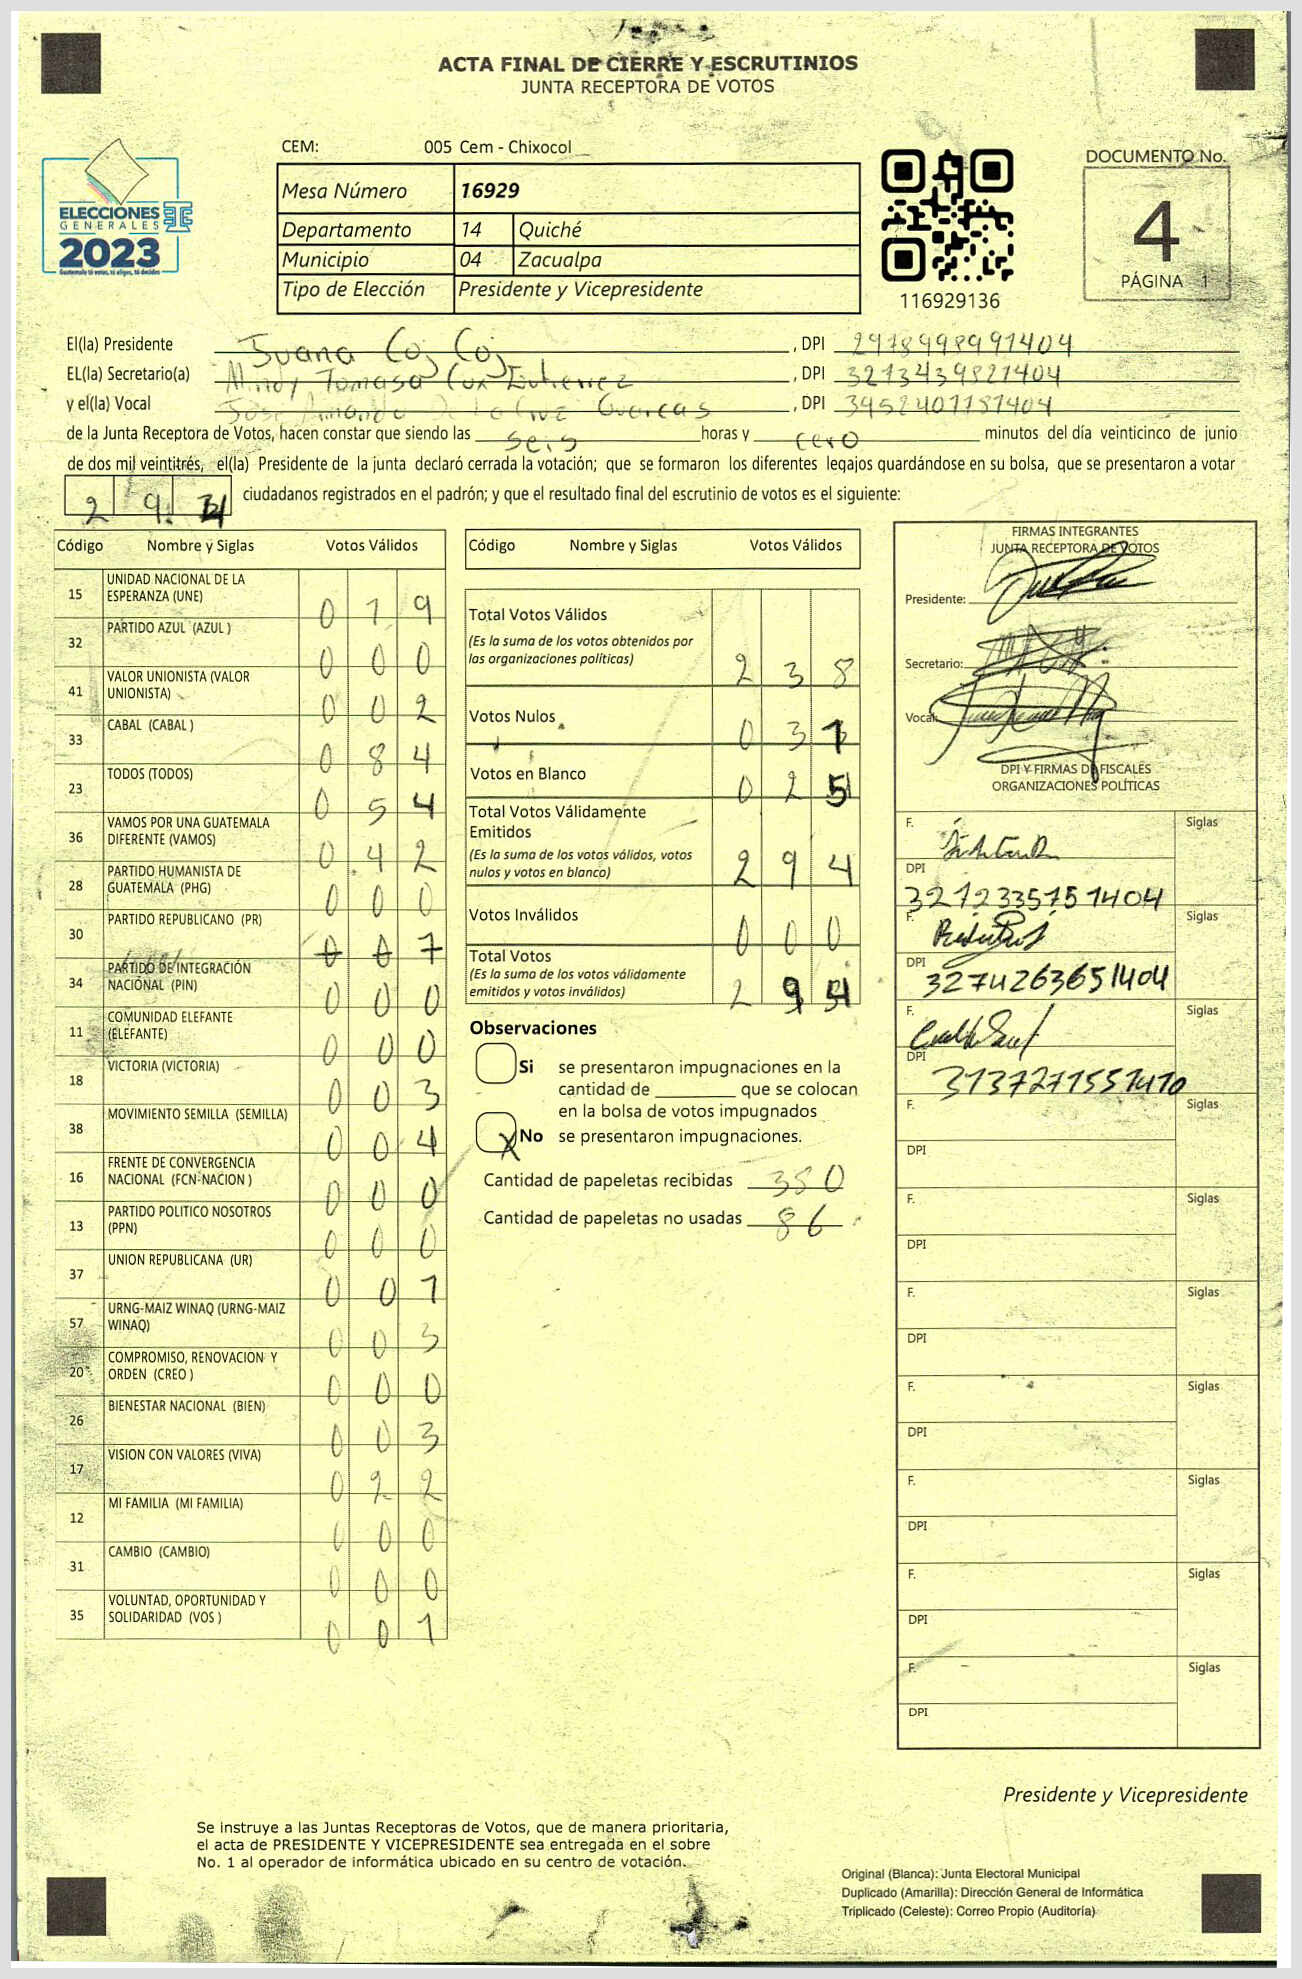 ACTA FINAL DE CIERRE Y ESCRUTINIOS
JUNTA RECEPTORA DE VOTOS
CEM: 005 Cem - Chixocol
ELECCIONES
GENERALES
2023
Guatemala tú votas, tú eliges, tú decides
Mesa Número 16929
Departamento 14 Quiché
Municipio 04 Zacualpa
Tipo de Elección Presidente y Vicepresidente
116929136
DOCUMENTO No.
4
PÁGINA 1
El(la) Presidente Juana Coj Coj , DPI 2918998991404
EL(la) Secretario(a) Mindy Tomasa Cux Gutierrez , DPI 3213439821404
y el(la) Vocal José Amando De la Cruz , DPI 3952401181404
de la Junta Receptora de Votos, hacen constar que siendo las seis horas y cero minutos del día veinticinco de junio
de dos mil veintitrés, el(la) Presidente de la junta declaró cerrada la votación; que se formaron los diferentes legajos guardándose en su bolsa, que se presentaron a votar
2 9 4 ciudadanos registrados en el padrón; y que el resultado final del escrutinio de votos es el siguiente:
Código Nombre y Siglas Votos Válidos
15 UNIDAD NACIONAL DE LA
ESPERANZA (UNE) 0 1 9
32 PARTIDO AZUL (AZUL ) 0 0 0
41 VALOR UNIONISTA (VALOR
UNIONISTA) 0 0 2
33 CABAL (CABAL ) 0 8 4
23 TODOS (TODOS) 0 5 4
36 VAMOS POR UNA GUATEMALA
DIFERENTE (VAMOS) 0 4 2
28 PARTIDO HUMANISTA DE
GUATEMALA (PHG) 0 0 0
30 PARTIDO REPUBLICANO (PR) 0 0 7
34 PARTIDO DE INTEGRACIÓN
NACIONAL (PIN) 0 0 0
11 COMUNIDAD ELEFANTE
(ELEFANTE) 0 0 0
18 VICTORIA (VICTORIA) 0 0 3
38 MOVIMIENTO SEMILLA (SEMILLA) 0 0 4
16 FRENTE DE CONVERGENCIA
NACIONAL (FCN-NACION ) 0 0 0
13 PARTIDO POLITICO NOSOTROS
(PPN) 0 0 0
37 UNION REPUBLICANA (UR) 0 0 1
57 URNG-MAIZ WINAQ (URNG-MAIZ
WINAQ) 0 0 3
20 COMPROMISO, RENOVACION Y
ORDEN (CREO ) 0 0 0
26 BIENESTAR NACIONAL (BIEN) 0 0 3
17 VISION CON VALORES (VIVA) 0 2 2
12 MI FAMILIA (MI FAMILIA) 0 0 0
31 CAMBIO (CAMBIO) 0 0 0
35 VOLUNTAD, OPORTUNIDAD Y
SOLIDARIDAD (VOS ) 0 0 1
Código Nombre y Siglas Votos Válidos
Total Votos Válidos
(Es la suma de los votos obtenidos por
las organizaciones políticas) 2 3 8
Votos Nulos 0 3 1
Votos en Blanco 0 2 5
Total Votos Válidamente
Emitidos
(Es la suma de los votos válidos, votos
nulos y votos en blanco) 2 9 4
Votos Inválidos 0 0 0
Total Votos
(Es la suma de los votos válidamente
emitidos y votos inválidos) 2 9 4
Observaciones
Si se presentaron impugnaciones en la
cantidad de ________ que se colocan
en la bolsa de votos impugnados
X No se presentaron impugnaciones.
Cantidad de papeletas recibidas 380
Cantidad de papeletas no usadas 86
FIRMAS INTEGRANTES
JUNTA RECEPTORA DE VOTOS
Presidente:
Secretario:
Vocal:
DPI Y FIRMAS DE FISCALES
ORGANIZACIONES POLÍTICAS
F. Siglas
DPI
3212335151404
F. Siglas
DPI
3274263651404
F. Siglas
DPI
3137271551410
F. Siglas
DPI
F. Siglas
DPI
F. Siglas
DPI
F. Siglas
DPI
F. Siglas
DPI
F. Siglas
DPI
F. Siglas
DPI
Presidente y Vicepresidente
Se instruye a las Juntas Receptoras de Votos, que de manera prioritaria,
el acta de PRESIDENTE Y VICEPRESIDENTE sea entregada en el sobre
No. 1 al operador de informática ubicado en su centro de votación.
Original (Blanca): Junta Electoral Municipal
Duplicado (Amarilla): Dirección General de Informática
Triplicado (Celeste): Correo Propio (Auditoría)